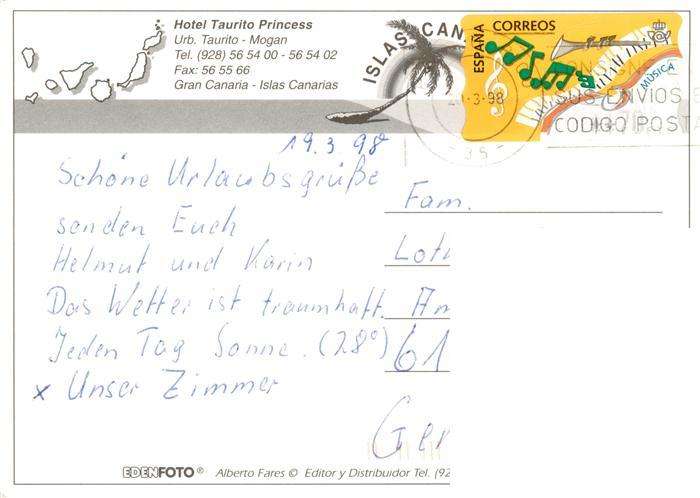 Hotel Taurito Princess
Urb. Taurito - Mogan
Tel. (928) 56 54 00 - 56 54 02
Fax: 56 55 66
Gran Canaria - Islas Canarias
ISLAS CAN
ESPAÑA
CORREOS
MUSICA
3-98
SUS ENVIOS
CODIGO POSTA
19.3 98
Schöne Urlaubsgrüße
senden Euch
Helmut und Karin
Das Wetter ist traumhaft.
Jeden Tag Sonne. (28°)
x Unser Zimmer
Fam.
Lot
Am
61
Ger
EDENFOTO® Alberto Fares © Editor y Distribuidor Tel. (92